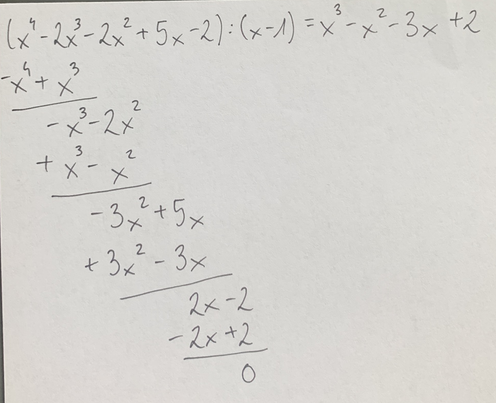 (x⁴-2x³-2x²+5x-2):(x-1)=x³-x²-3x+2
-x⁴+x³
-x³-2x²
+x³-x²
-3x²+5x
+3x²-3x
2x-2
-2x+2
0